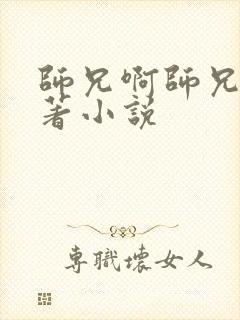 師兄啊師兄
著小説
專職壞女人